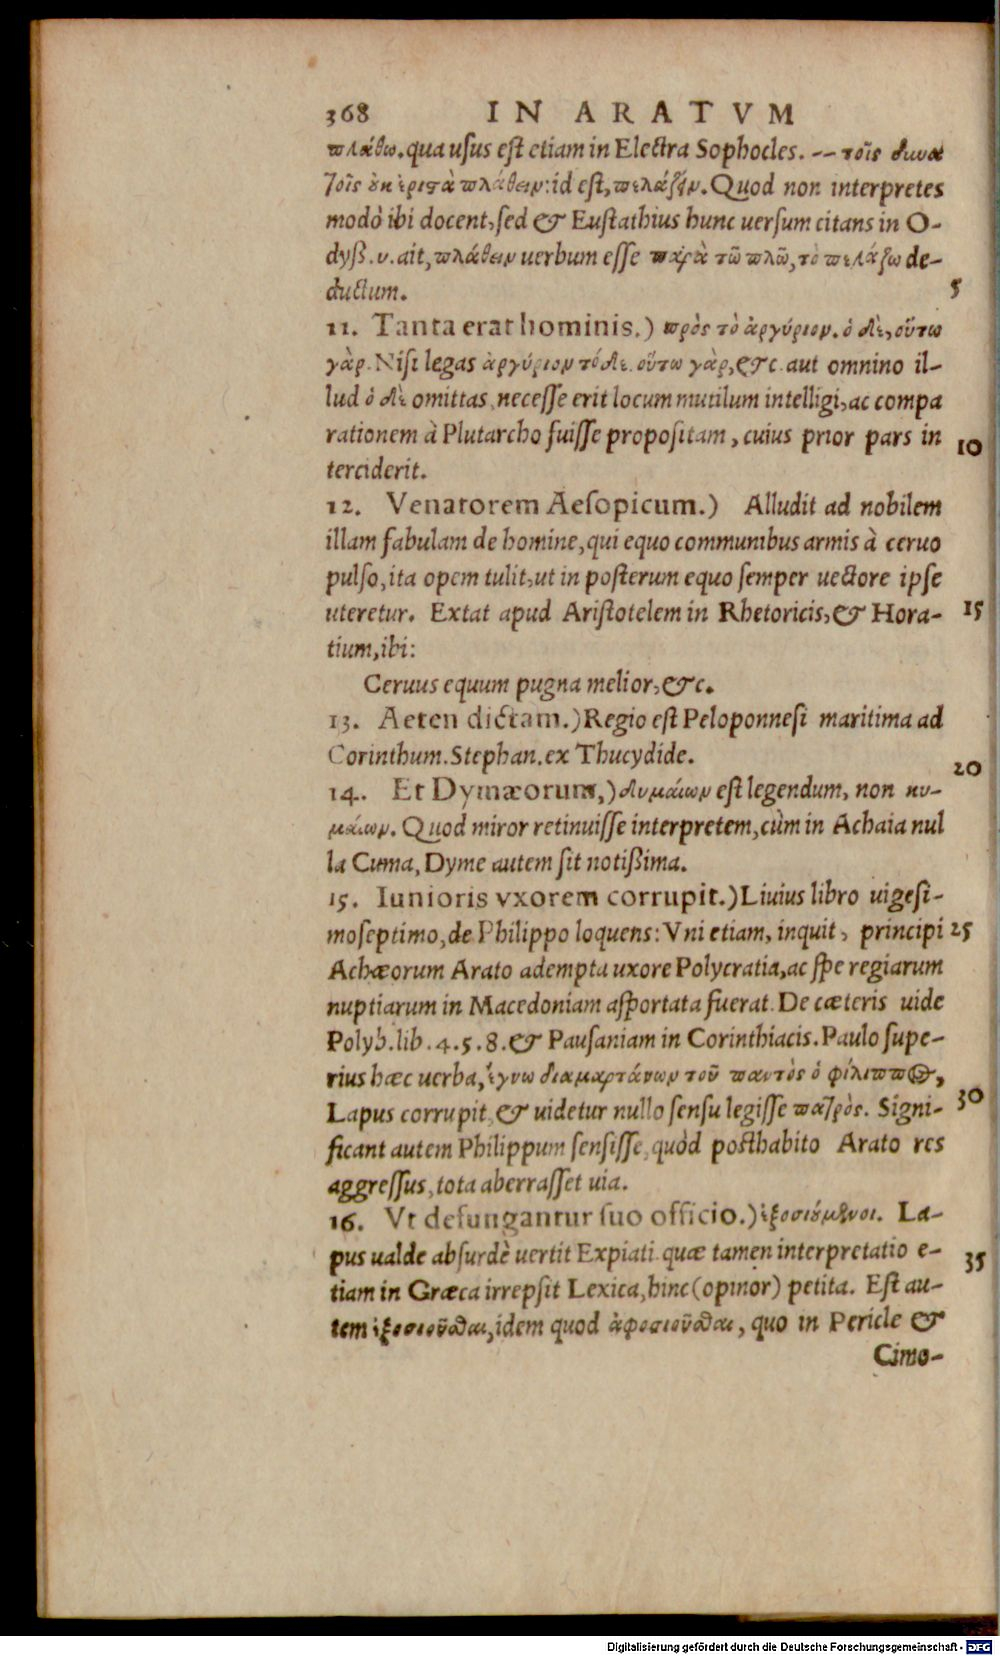 368 IN ARATVM
πλάθω. qua usus est etiam in Electra Sophocles. -- τοῖς δυνα
τοῖς οὐκ ἐριστὰ πλάθειν: id est, πελάζειν. Quod non interpretes
modò ibi docent, sed & Eustathius hunc uersum citans in O-
dyß. υ. ait, πλάθειν uerbum esse παρὰ τῶ πλῶ, τὸ πελάζω de-
ductum. 5
11. Tanta erat hominis.) πρὸς τὸ ἀργύριον. ὁ δὲ, οὕτω
γὰρ. Nisi legas ἀργύριον τόδε. οὕτω γὰρ, &c. aut omnino il-
lud ὁ δὲ omittas, necesse erit locum mutilum intelligi, ac compa
rationem à Plutarcho fuisse propositam, cuius prior pars in 10
terciderit.
12. Venatorem Aesopicum.) Alludit ad nobilem
illam fabulam de homine, qui equo communibus armis à ceruo
pulso, ita opem tulit, ut in posterum equo semper uectore ipse
uteretur. Extat apud Aristotelem in Rhetoricis, & Hora- 15
tium, ibi:
Ceruus equum pugna melior, &c.
13. Aeten dictam.) Regio est Peloponnesi maritima ad
Corinthum. Stephan. ex Thucydide.
14. Et Dymæorum,) δυμαίων est legendum, non κυ- 20
μαίων. Quod miror retinuisse interpretem, cùm in Achaia nul
la Cuma, Dyme autem sit notißima.
15. Iunioris vxorem corrupit.) Liuius libro uigesi-
moseptimo, de Philippo loquens: Vni etiam, inquit, principi 25
Achæorum Arato adempta uxore Polycratia, ac spe regiarum
nuptiarum in Macedoniam asportata fuerat. De cæteris uide
Polyb. lib. 4. 5. 8. & Pausaniam in Corinthiacis. Paulo supe-
rius hæc uerba, ἔγνω διαμαρτάνων τοῦ παντὸς ὁ φίλιππος,
Lapus corrupit, & uidetur nullo sensu legisse πατρὸς. Signi- 30
ficant autem Philippum sensisse, quòd posthabito Arato res
aggressus, tota aberrasset uia.
16. Vt defungantur suo officio.) ἐξοσιούμενοι. La-
pus ualde absurdè uertit Expiati. quæ tamen interpretatio e-
tiam in Græca irrepsit Lexica, hinc (opinor) petita. Est au- 35
tem ἐξοσιοῦσθαι, idem quod ἀφοσιοῦσθαι, quo in Pericle &
Cimo-
Digitalisierung gefördert durch die Deutsche Forschungsgemeinschaft - DFG